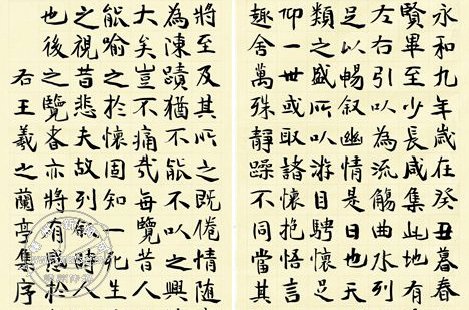 永和九年歲在癸丑暮春
賢畢至少長咸集此地有
左右引以為流觴曲水列
足以暢叙幽情是日也天
類之盛所以游目騁懷足
仰一世或取諸懷抱悟言
趣舍萬殊靜躁不同當其
將至及其所之既倦情随
為陳蹟猶不能不以之興
大矣豈不痛哉每覽昔人
能喻之於懷固知一死生
之視昔悲夫故列叙時人
也後之覽者亦將有感於
右王羲之蘭亭集序